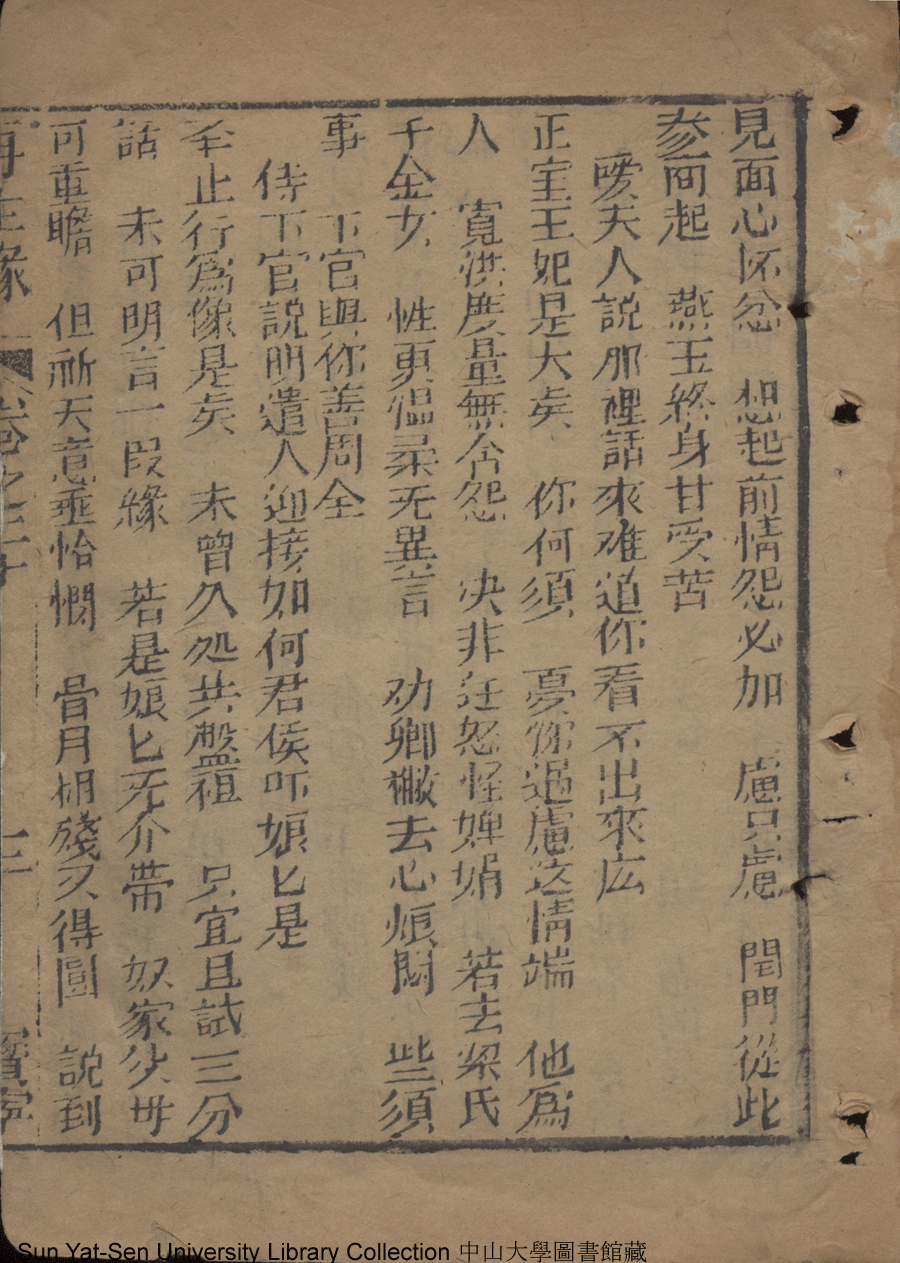 見面心怀忿　想起前情怨必加　慮只慮　閏門從此
参啇起　燕玉終身甘受苦
嗳夫人説那裡話來难道你看不出來広
正室王妃是大矣　你何須　憂你過慮这情端　他爲
人　寬洪度量無含怨　决非狂怒怪婢娟　若去梁氏
千金女　性更温柔无異言　劝卿撇去心煩悶　些須
事　下官與你善周全
侍下官説明遣人迎接如何君侯吓娘匕是
举止行爲像是矣　未曾久処共盤祖　只宜且試三分
話　未可明言一段緣　若是娘匕无介帶　奴家父毋
可重瞻　但祈天意垂怡憫　骨月相殘又得圓　説到
再生緣　卷之二十　十三　寶寧
Sun Yat-Sen University Library Collection 中山大學圖書館藏